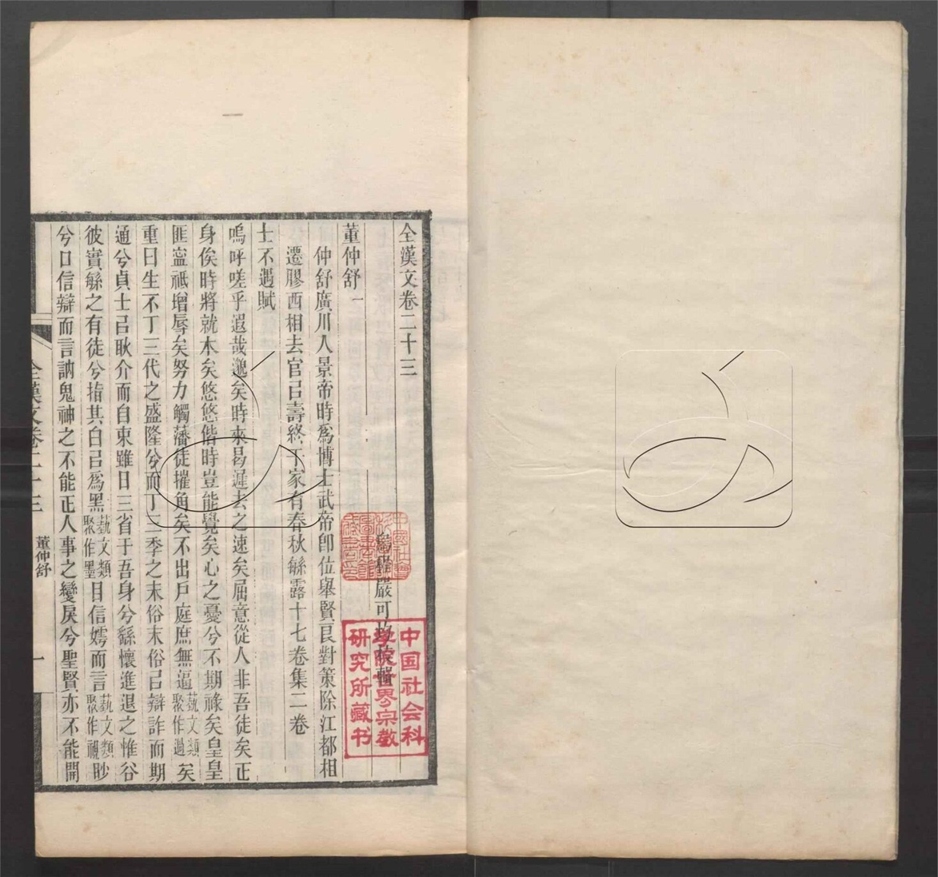 全漢文卷二十三
烏程嚴可均校輯
董仲舒一
仲舒廣川人景帝時爲博士武帝卽位舉賢良對策除江都相
遷膠西相去官㠯壽終于家有春秋緐露十七卷集二卷
士不遇賦
嗚呼嗟乎遐哉邈矣時來曷遲去之速矣屈意從人非吾徒矣正
身俟時將就木矣悠悠偕時豈能覺矣心之憂兮不期祿矣皇皇
匪寍祇增辱矣努力觸藩徒摧角矣不出戶庭庶無過藝文類聚作過矣
重曰生不丁三代之盛隆兮而丁三季之末俗末俗㠯辯詐而期
通兮貞士㠯耿介而自束雖日三省于吾身兮繇懷進退之惟谷
彼實緐之有徒兮指其白㠯爲黑藝文類聚作墨目信嫮而言藝文類聚作視眇
兮口信辯而言訥鬼神之不能正人事之變戾兮聖賢亦不能開
全漢文卷二十三
董仲舒
一
中国社会科
學院世界宗教
研究所藏书